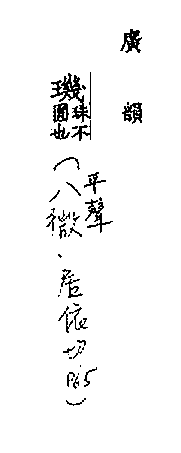 廣韻
璣珠不
圓也
(八微、居依切 P65)
平聲